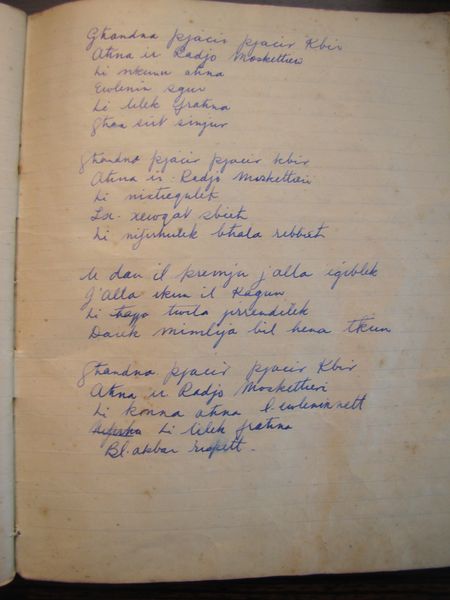 Ghandna pjacir pjacir Kbir
Ahna ir Radjo Moskettieri
Li nkunu ahna
Ewlenin sgur
Li lilek frahna
Ghan siit sinjur
Ghandna pjacir pjacir kbir
Ahna ir. Radjo Moskettieri
Li nistiequlek
Lx. xewqat sbieh
Li nifirhulek bhala rebbieh
U dan il premju j'alla igiblek
J'alla ikun il Kagun
Li turla jirrendilek
Darek mimlija bil hena tkun
Ghandna pjacir pjacir Kbir
Ahna ir Radjo Moskettieri
Li konna ahna l. ewlenin nett
Li lilek frahna
Bl. akbar rispett.